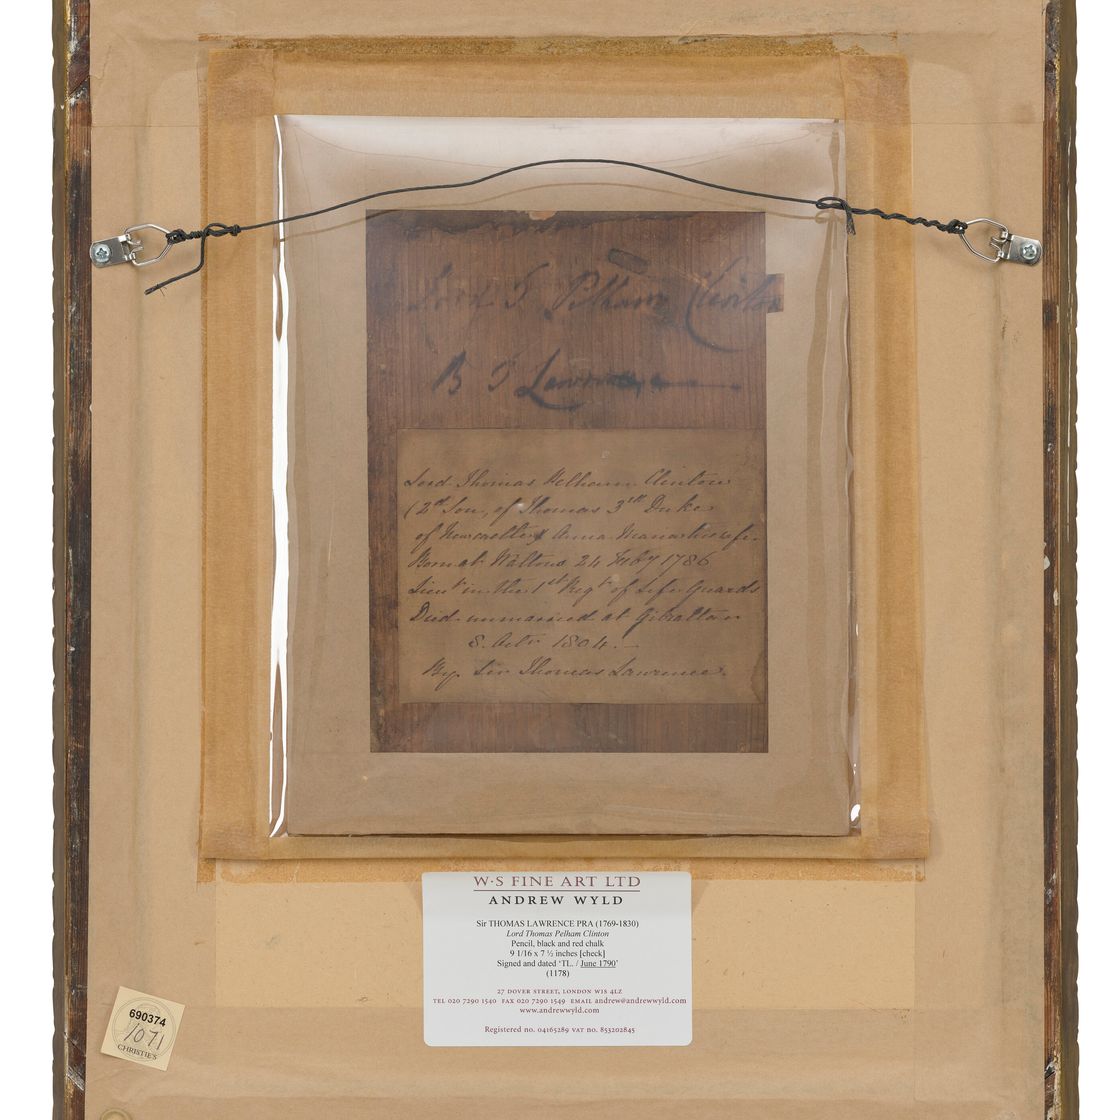 Lord T Pelham Clinton
B T Lawrence
Lord Thomas Pelham Clinton
(2nd Son, of Thomas 3rd Duke
of Newcastle & Anna Maria his wife.
Born at Walton 24 Feby 1786
Lieut in the 1st Regt of Life Guards
Died unmarried at Gibraltar
8. Octr 1804.
By Sir Thomas Lawrence.
W·S FINE ART LTD
ANDREW WYLD
Sir THOMAS LAWRENCE PRA (1769-1830)
Lord Thomas Pelham Clinton
Pencil, black and red chalk
9 1/16 x 7 ½ inches [check]
Signed and dated ‘TL. / June 1790’
(1178)
27 DOVER STREET, LONDON W1S 4LZ
TEL 020 7290 1540 FAX 020 7290 1549 EMAIL andrew@andrewwyld.com
www.andrewwyld.com
Registered no. 04165289 VAT no. 853202845
690374
1071
CHRISTIE'S